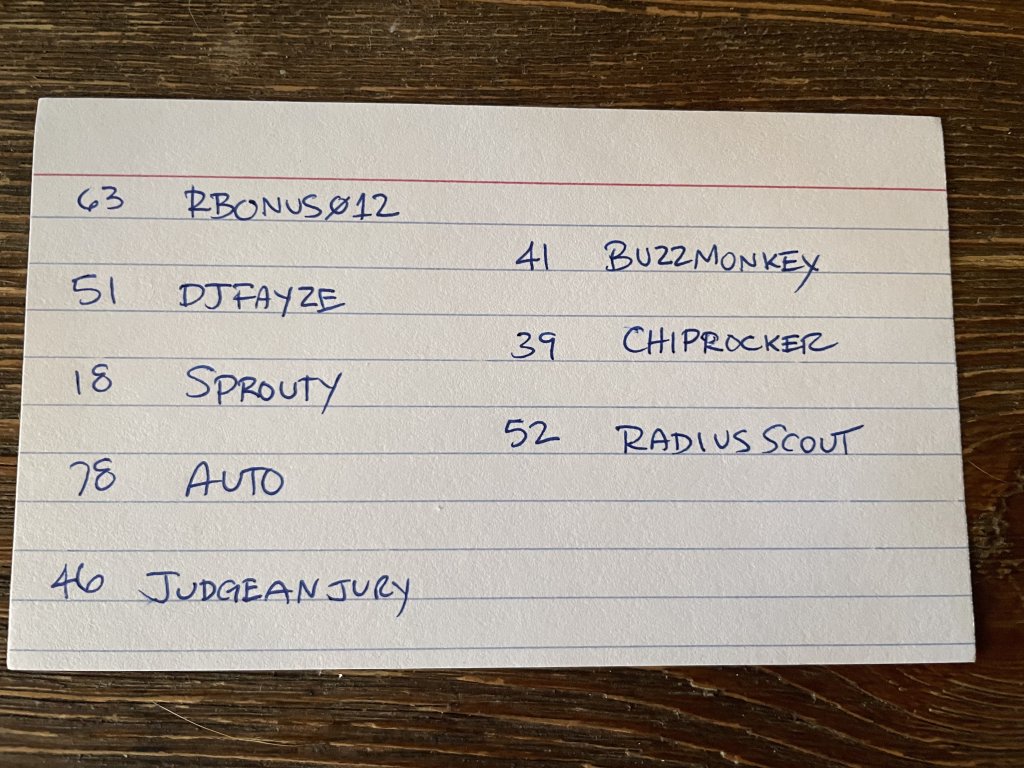 63 RBONUSØ12
51 DJFAYZE
18 SPROUTY
78 AUTO
46 JUDGEANJURY
41 BUZZMONKEY
39 CHIPROCKER
52 RADIUSSCOUT